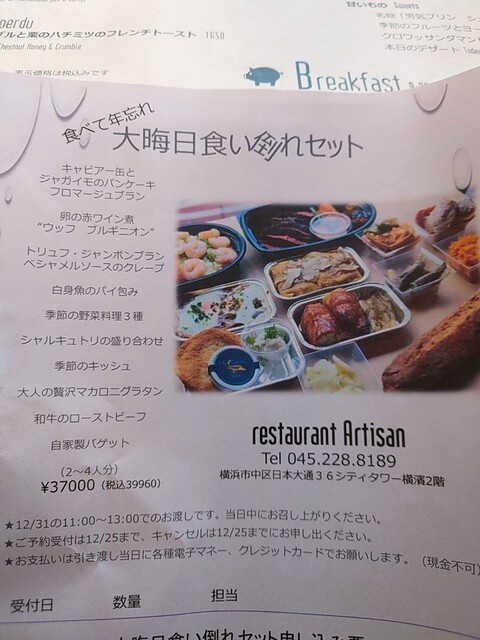 perdu
甘いもの Sweets
名物「男気プリン
グルと栗のハチミツのフレンチトースト 1650
季節のフルーツとヨー
Chestnut Honey & Crumble
クロワッサンダマン
本日のデザート Today
表示価格は税込みです
Breakfast
食べて年忘れ
大晦日食い倒れセット
キャビアー缶と
ジャガイモのパンケーキ
フロマージュブラン
卵の赤ワイン煮
“ウッフ ブルギニオン”
トリュフ・ジャンボンブラン
ベシャメルソースのクレープ
白身魚のパイ包み
季節の野菜料理３種
シャルキュトリの盛り合わせ
季節のキッシュ
大人の贅沢マカロニグラタン
和牛のローストビーフ
自家製バゲット
(2～4人分)
¥37000 (税込39960)
restaurant Artisan
Tel 045.228.8189
横浜市中区日本大通３６シティタワー横濱2階
★12/31の11:00～13:00でのお渡しです。当日中にお召し上がりください。
★ご予約受付は12/25まで、キャンセルは12/25までにお申し出ください。
★お支払いは引き渡し当日に各種電子マネー、クレジットカードでお願いします。（現金不可）
受付日 数量 担当
大晦日食い倒れセット申し込み票